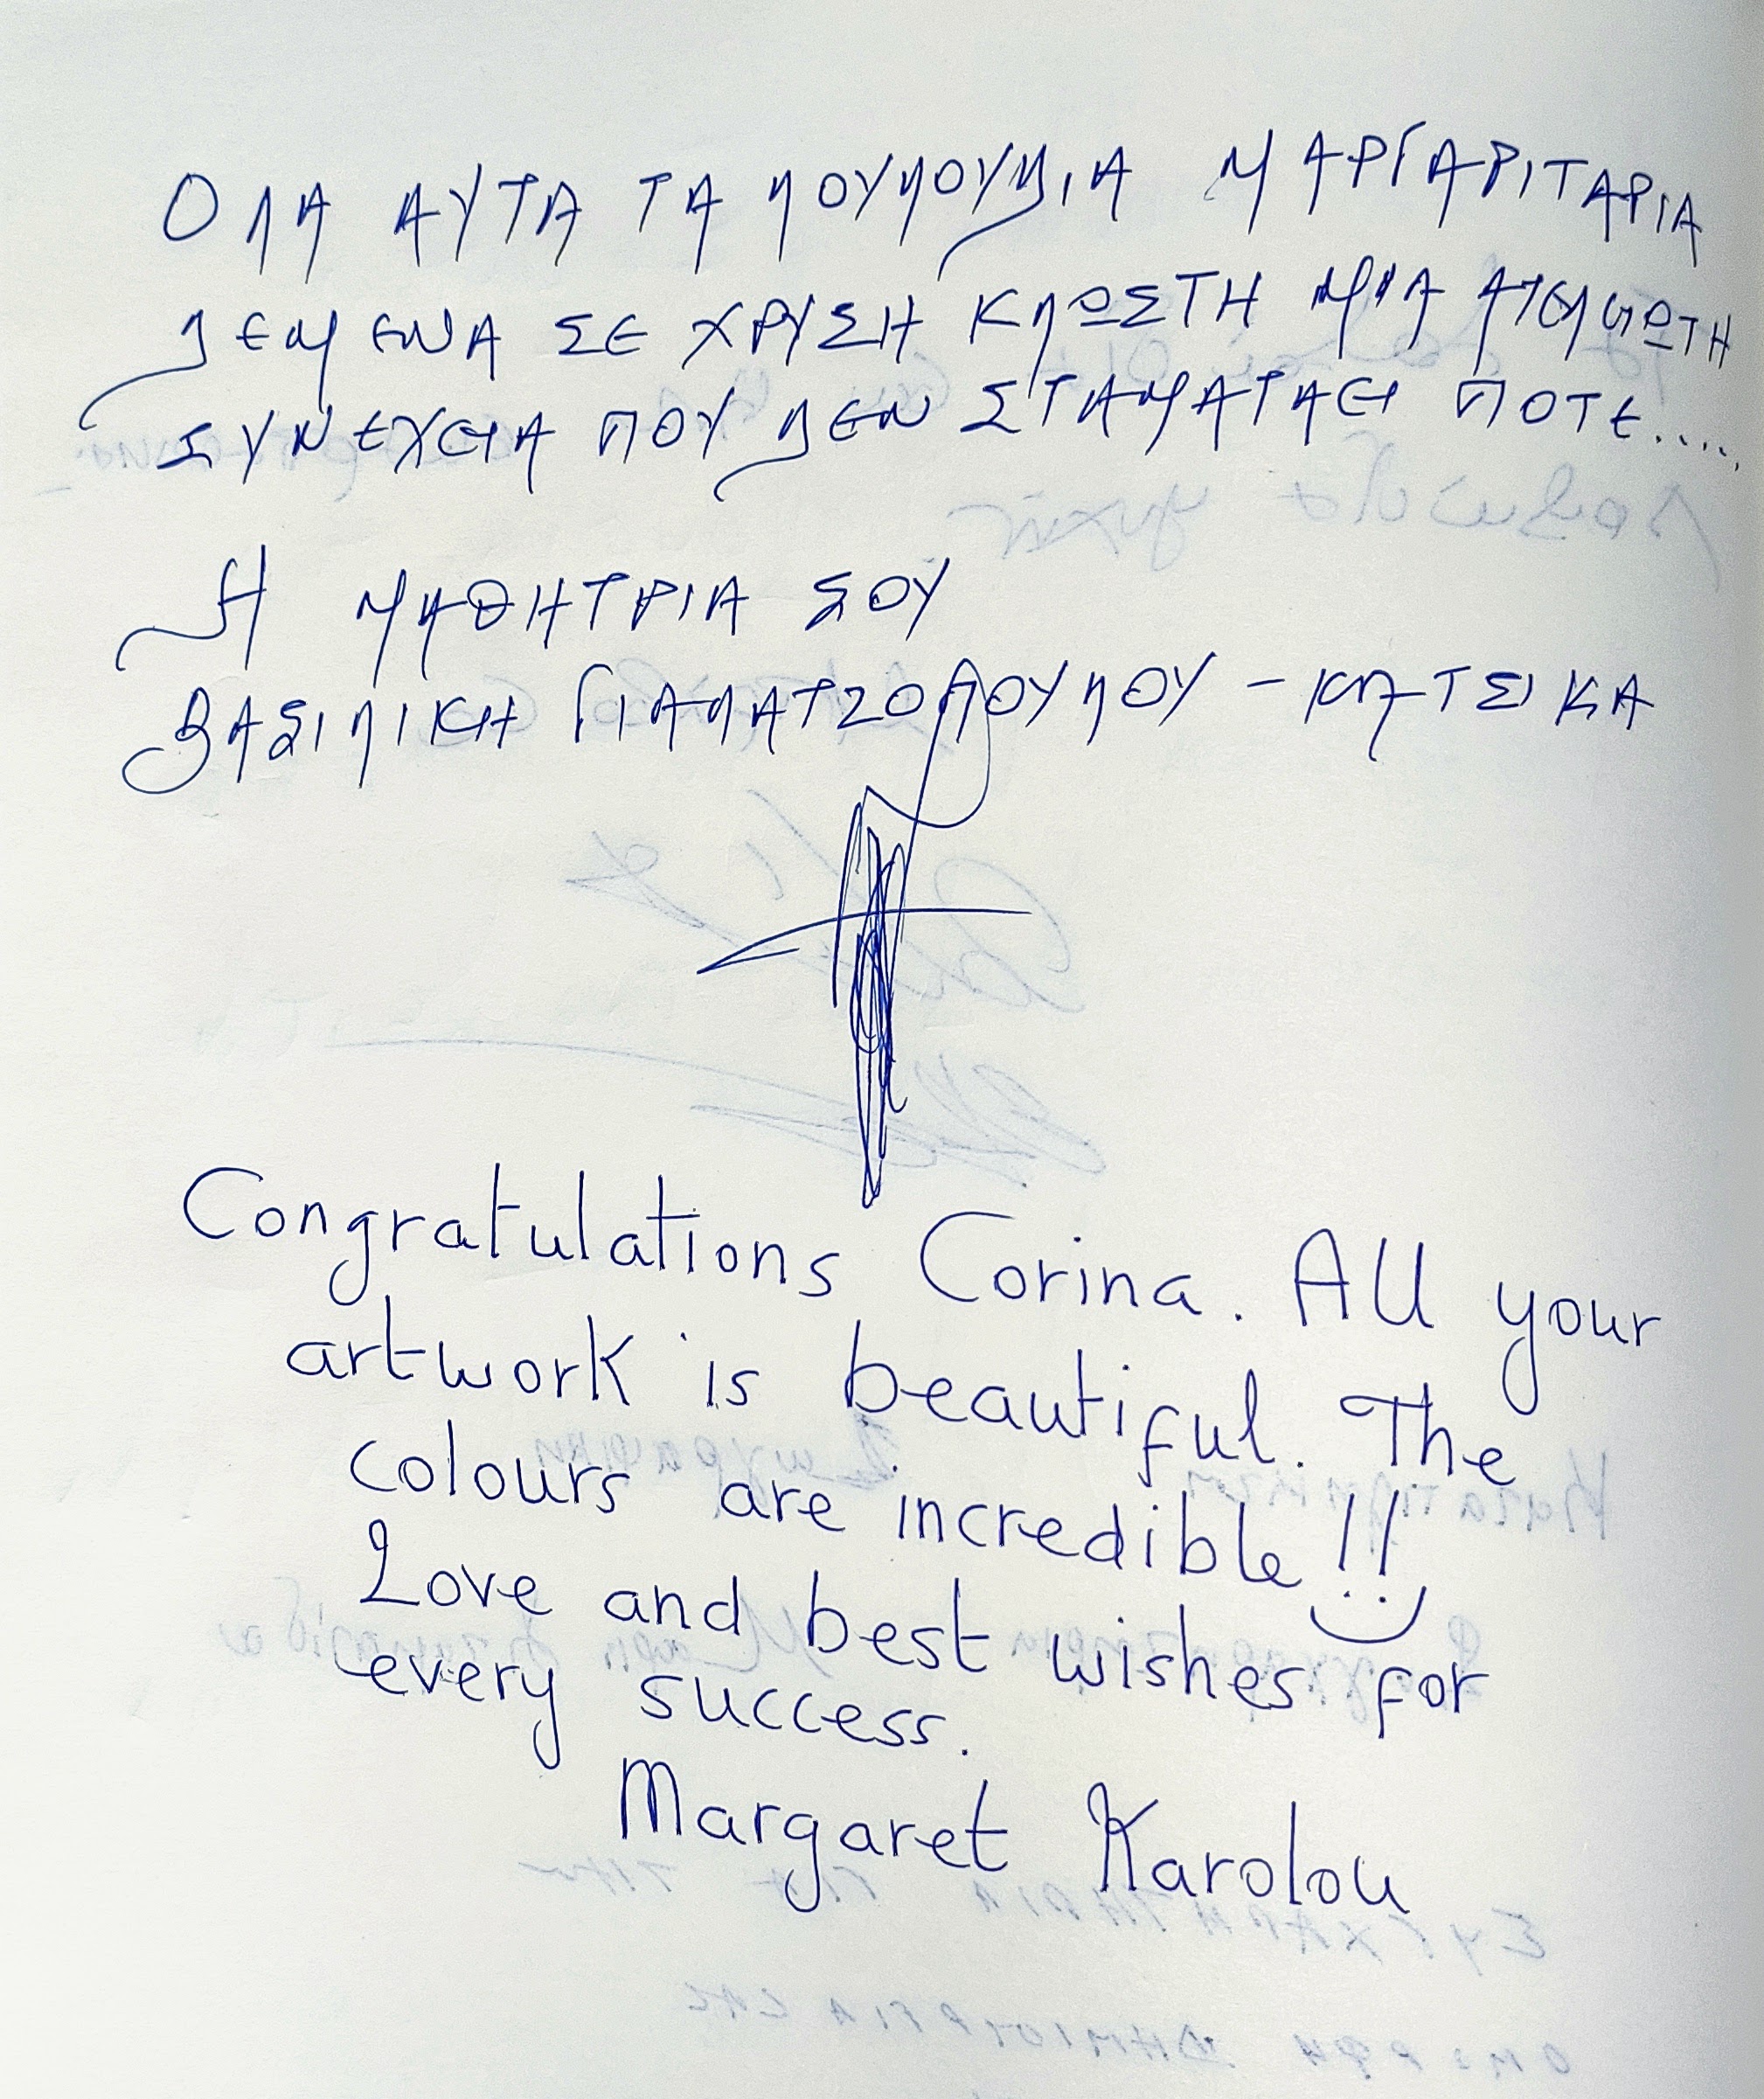 ΟΛΑ ΑΥΤΑ ΤΑ ΛΟΥΛΟΥΔΙΑ ΜΑΡΓΑΡΙΤΑΡΙΑ
ΔΕΜΕΝΑ ΣΕ ΧΡΥΣΗ ΚΛΩΣΤΗ ΜΙΑ ΑΤΕΛΕΙΩΤΗ
ΣΥΝΕΧΕΙΑ ΠΟΥ ΔΕΝ ΣΤΑΜΑΤΑΕΙ ΠΟΤΕ.....
Η ΜΑΘΗΤΡΙΑ ΣΟΥ
ΒΑΣΙΛΙΚΗ ΓΙΑΛΑΤΖΟΠΟΥΛΟΥ -
Congratulations Corina. All your
artwork is beautiful. The
colours are incredible!!
Love and best wishes for
every success.
Margaret Karolou